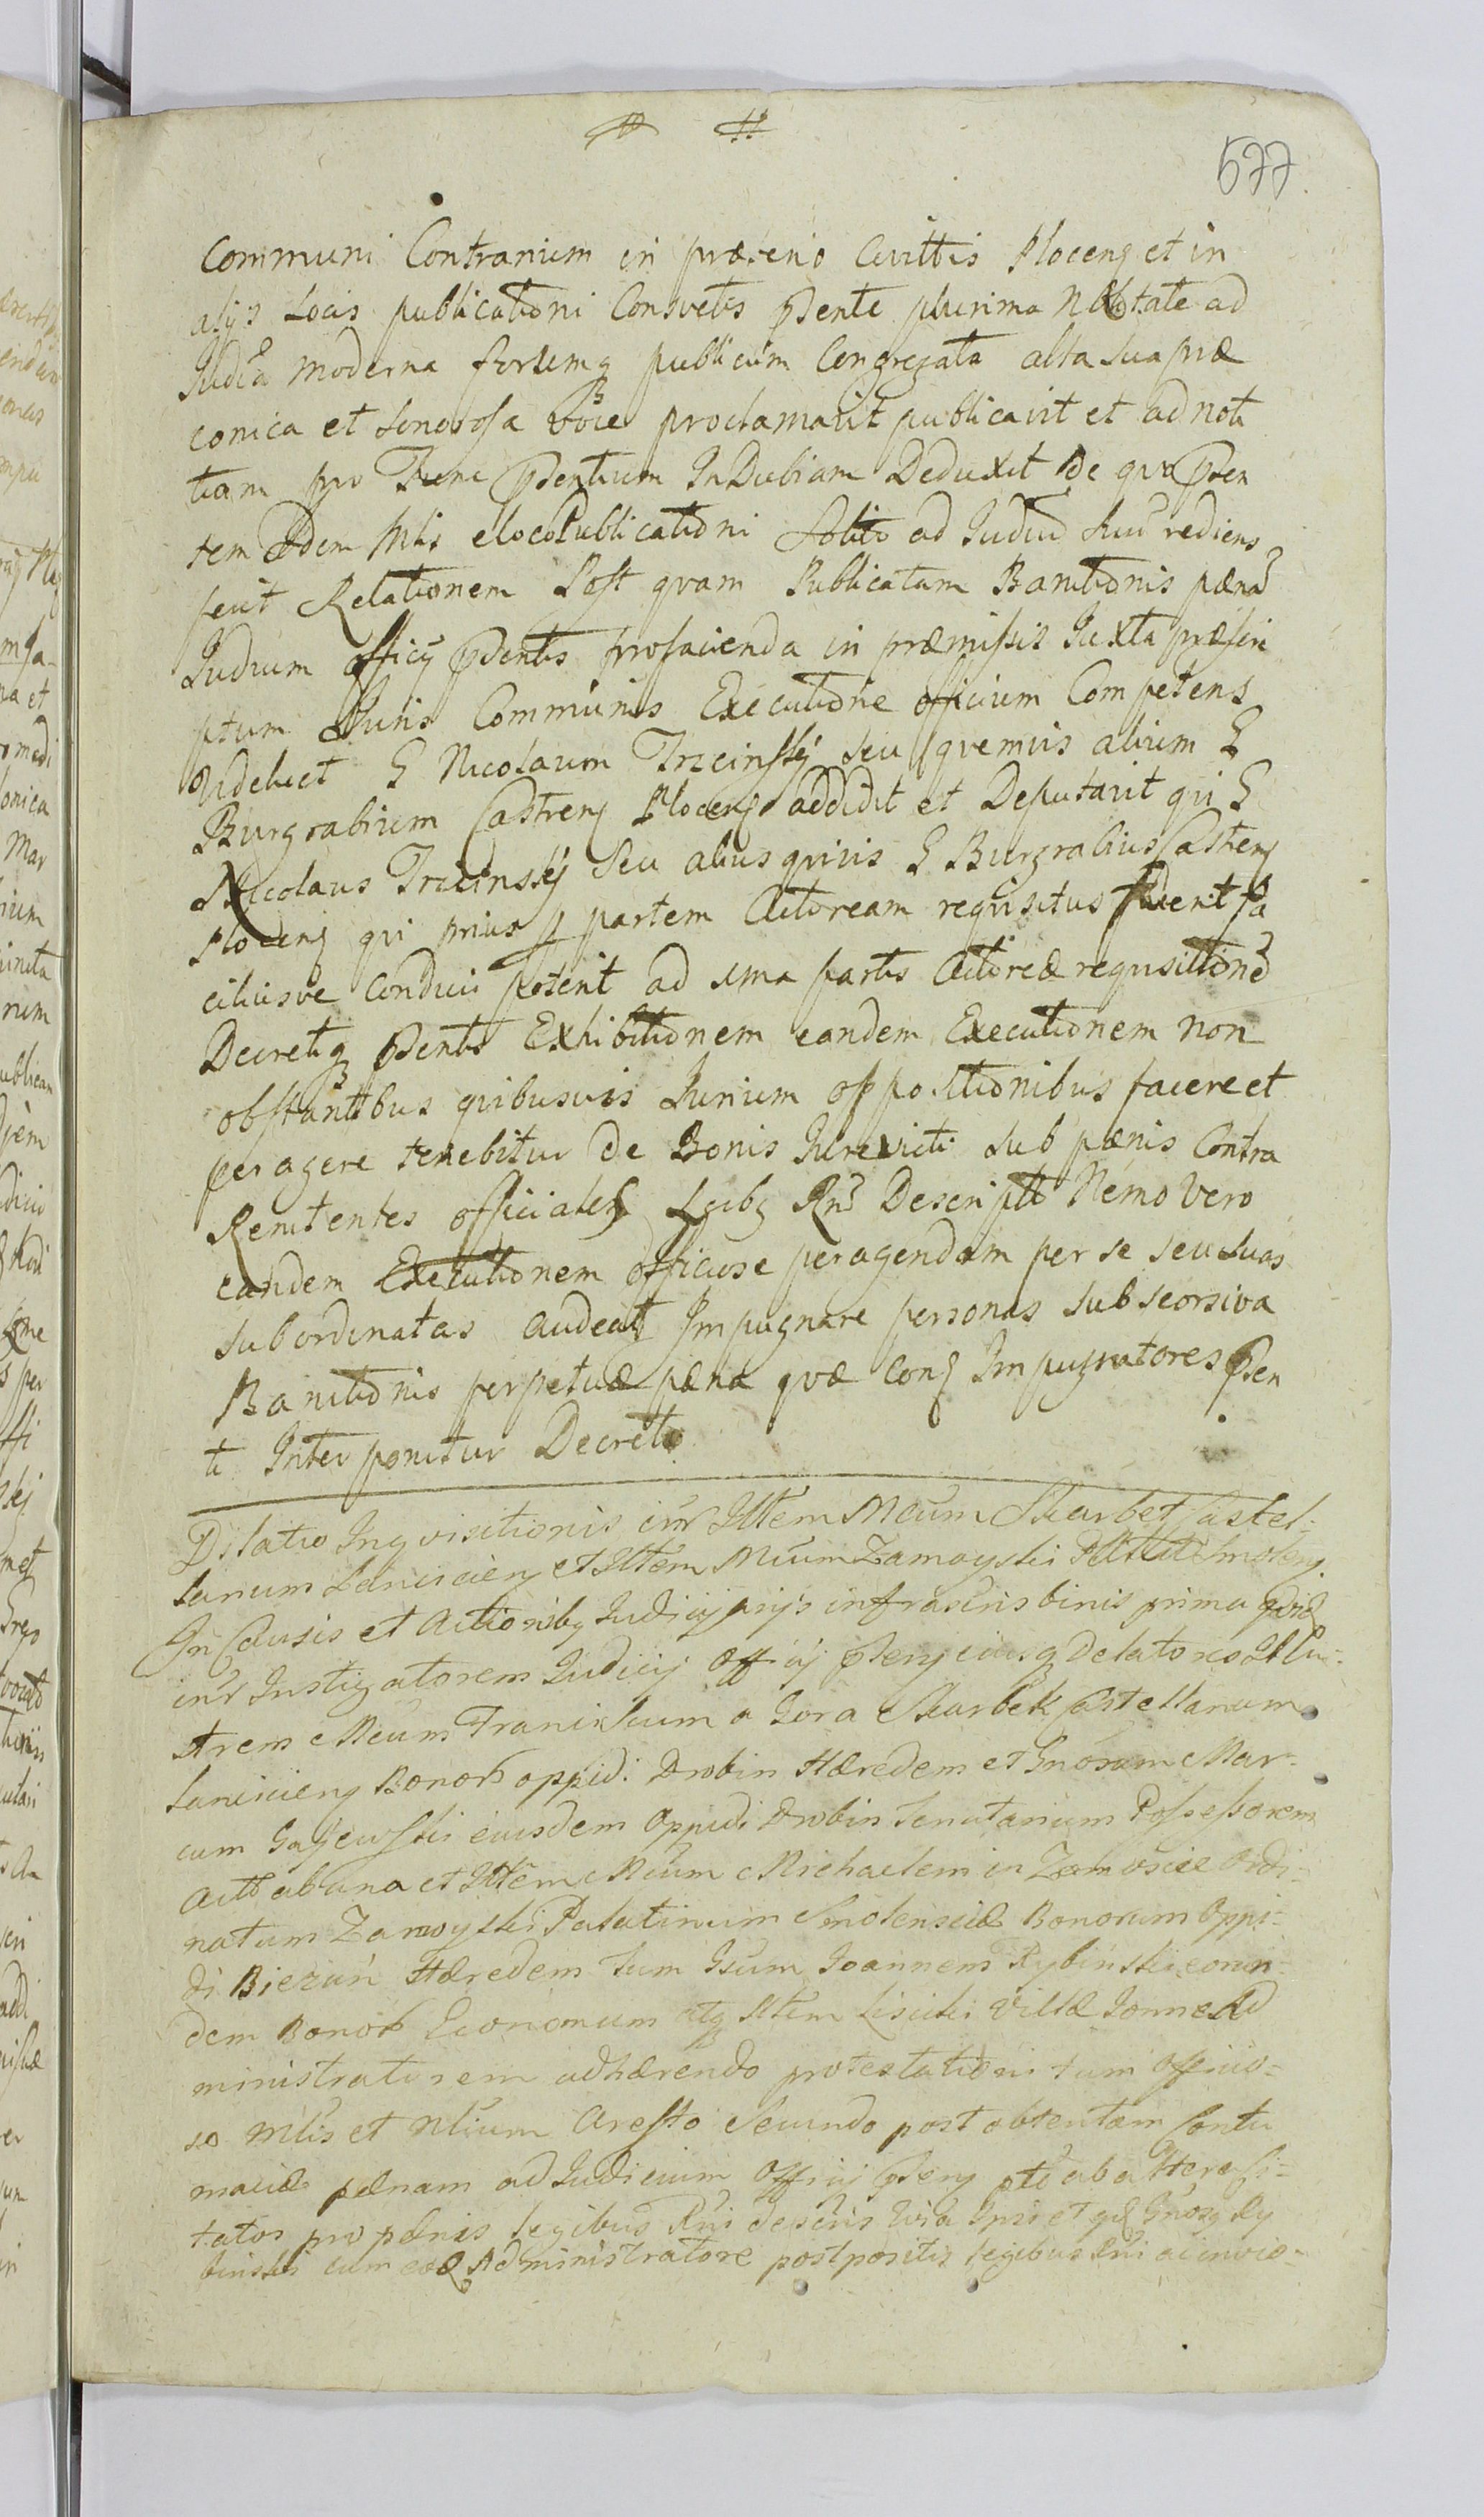 577
Communi Contranium in præsenõ Civittis Plocensꝫ et in
alijs Locis publicationi Consvetis pñente plurima Nbltate ad
Judia moderna forumqꝫ publicum Congregata alta sua præ
conica et sonorosa voce proclamavit publicavit et ad noti
tiam pro Tunc pñdentium InDubiam Deduxit De qua pñsen
tem Idem Mtis e loco Publicationi Solito ad Judiu suu rediens
fecit Relationem Post qvam Publicatam Banitionis pænã
Judium officij pñdentis pro facienda in præmissis Juxta præscri
ptum Juris Communis Executione officium Competens
Videlicet G Nicolaum Trzcinsky seu qvemvis alium G
Burgrabium Castrensꝫ Plocensꝫ addidit et Deputavit qui G
Nicolaus Trzcinsky Seu alius qvivis G Burgrabius Castrensꝫ
Plocensꝫ qui prius p partem Actoream reqvisitus fuerit fa
ciliusve Conduci poterit ad uma partis Actoreæ reqvisitionẽ
Decretiqꝫ pñdentis Exhibitionem eandem Executionem non
obstantibus qvibusvis Jurium oppositionibus facere et
peragere tenebitur De Bonis Jurevicti sub pænis Contra
Renitentes officiales Lgibꝫ Rnĩ Descriptis Nemo vero
eandem Executionem officiose peragendam per se seu suas
subordinatas audeat Impugnare personas sub seorsiva
Banitionis perpetuæ pæna qvæ Conꝫ Impugnatores pñsen
ti Interponitur Decreto
Dilatio Inqvisitionis inr Illtem Mcum Skarbek Castel-
lanum Lancicienꝫ et Illtem Mcum Zamoyski Plttm Smolensꝫ
In Causis et Actionibꝫ Judicij prijs infrascris binis prima qvid
inr Instigatorem Judicij Officij pñsensꝫ eiusqꝫ Delatores Illu-
strem Mcum Franciscum a Gora Skarbek Castellanum
Lancicienꝫ Bonoꝝ oppidi Drobin Hæredem et Gnosum Mar-
cum Gajewski eiusdem Oppidi Drobin Tenutarium Possessorem
Actt ab una et Illtem Mcum Michaelem in Zamoscie Ordi-
natum Zamoyski Palatinum Smolensciæ Bonorum Oppi-
di Bieżuń Hæredem tum Gsum Joannem Rybinski eorun-
dem Bonoꝝ Economum atqꝫ Illtem Lisicki Villæ Jonne Ad
ministratorem adhærendo protestationi tum officio-
so Mtis et Nlium Aresto Secundo post obtentam Contu
maciæ pænam ad Judicium Officij pñsensꝫ ptẽ ab a Heresi-
tatos pro pænis legibus Rni descris Evia Ipsi et qd Gnosꝫ Ry
binski cum eod Administratore postpositis legibus Rni ac invio-